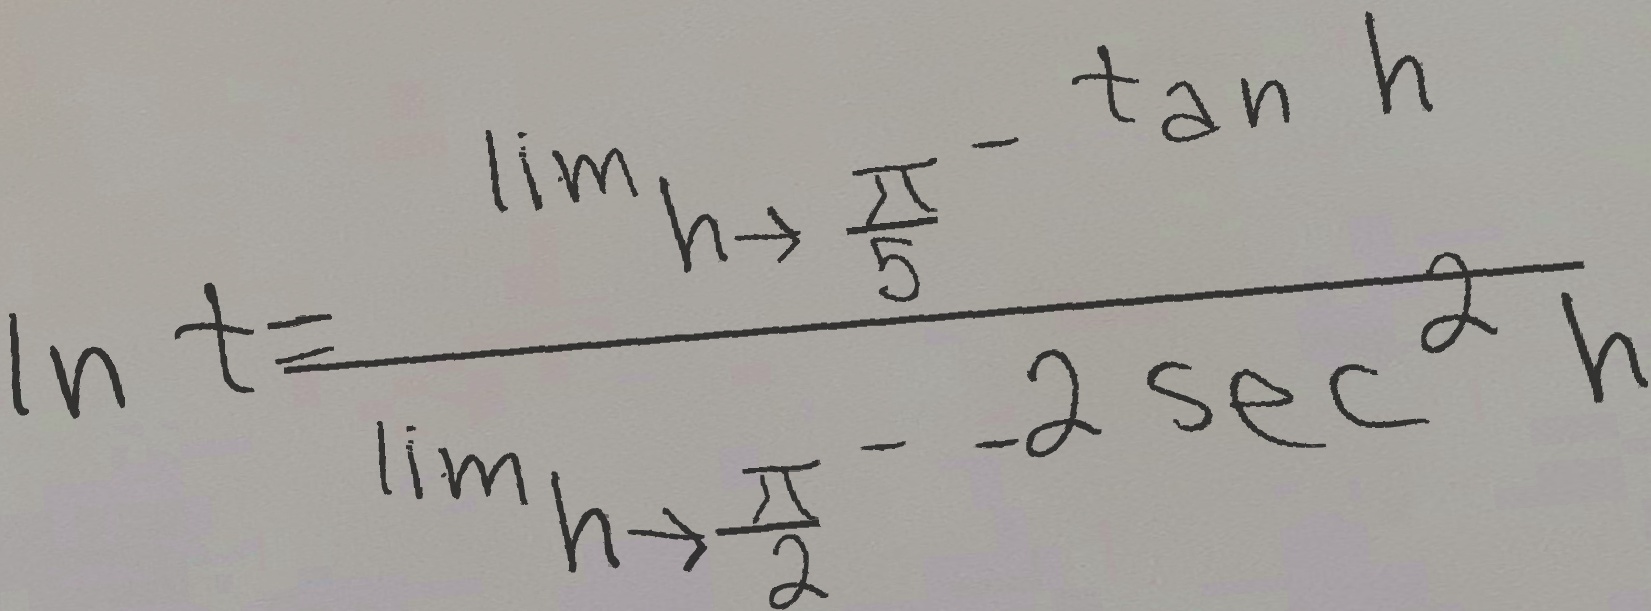 ln t = \frac{\lim_{h \to \frac{\pi}{5}^-} \tan h}{\lim_{h \to \frac{\pi}{2}^-} -2 \sec^2 h}